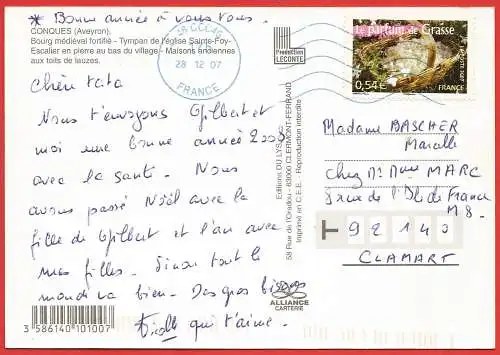 * Bonne année à vous tous.
CONQUES (Aveyron).
Bourg médiéval fortifié - Tympan de l'église Sainte-Foy-
Escalier en pierre au bas du village - Maisons anciennes
aux toits de lauzes.
28 12 07
FRANCE
Production
LECONTE
Le parfum de Grasse
0,54€
FRANCE
Chère tata
Nous t'envoyons Gilbert et
moi une bonne année 2008
avec la santé. Nous
avons passé Noël avec la
fille de Gilbert et l'an avec
mes filles. Sinon tout le
monde va bien. Des gros bisous
qui t'aime.
Editions DU LYS
58 Rue de l'Oradou - 63000 CLERMONT-FERRAND
Imprimé en C.E.E. - Reproduction interdite
ALLIANCE
CARTERIE
3 586140 101007
Madame BASCHER
Marcelle
Chez Mr Mme MARC
rue de l'Ile de France
T 92140
CLAMART